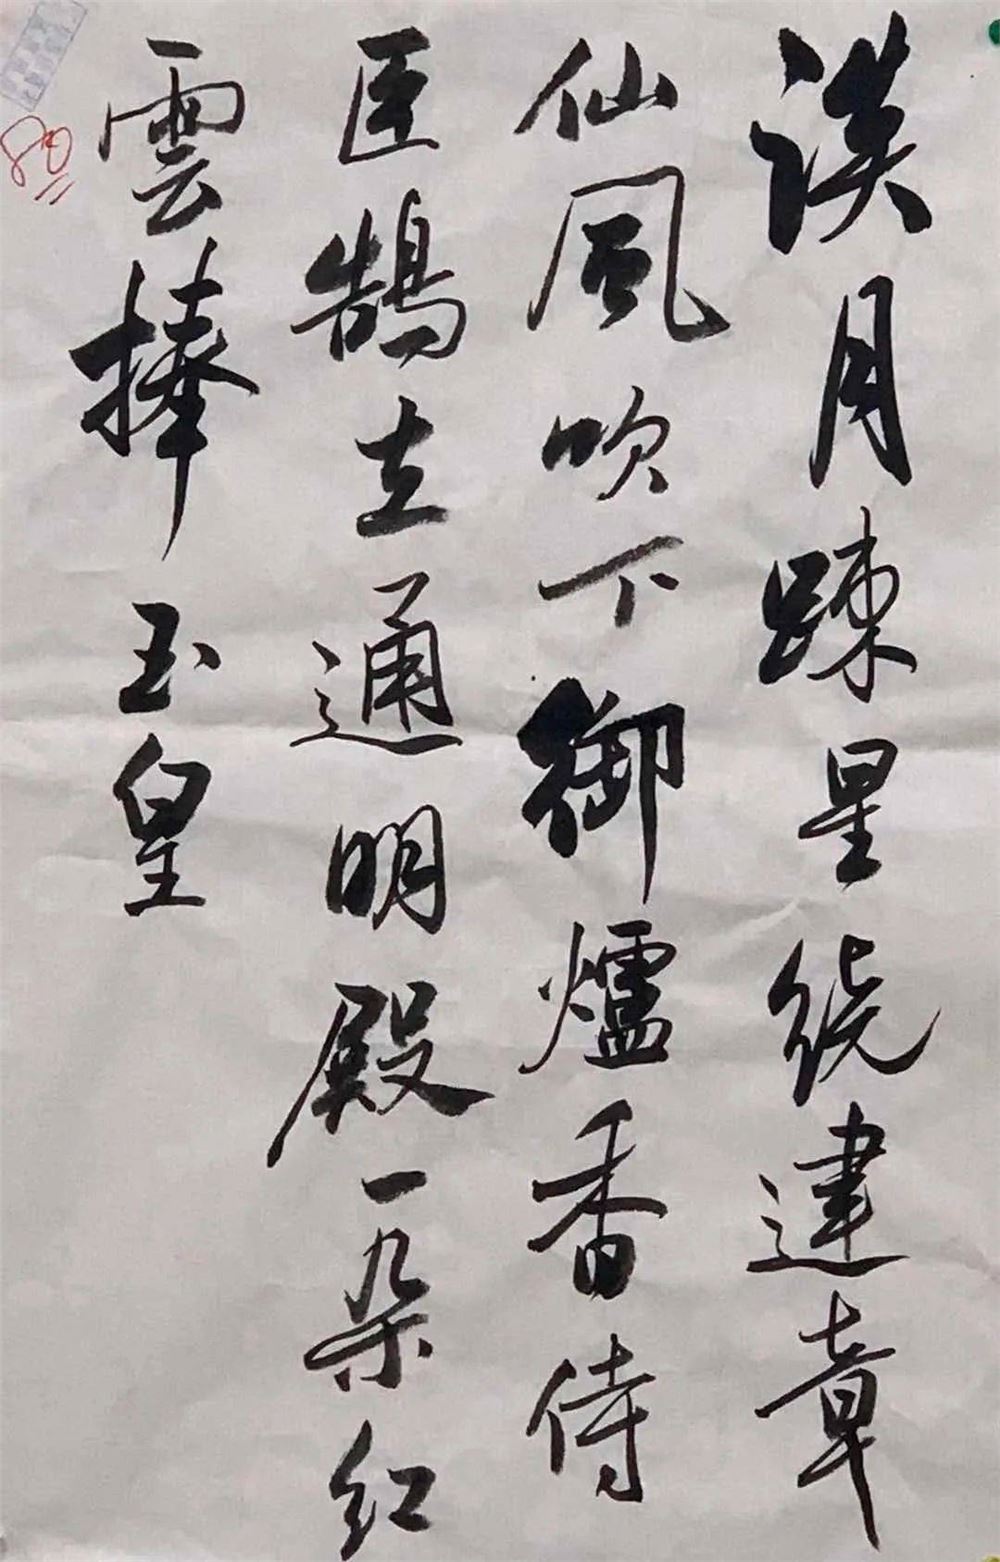 淡月踈星繞建章
仙風吹下御爐香侍
臣鵠立通明殿一朶紅
雲捧玉皇
80